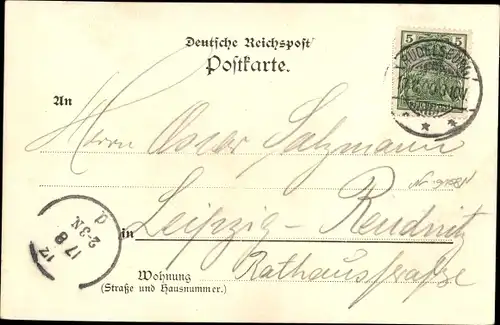 Deutsche Reichspost
Postkarte.
5 5
RUDELSBURG
An
Herrn Oscar Salzmann
Leipzig-Reudnitz
in
Rathausstraße
Wohnung
(Straße und Hausnummer.)
17
17 8
2-3N
d